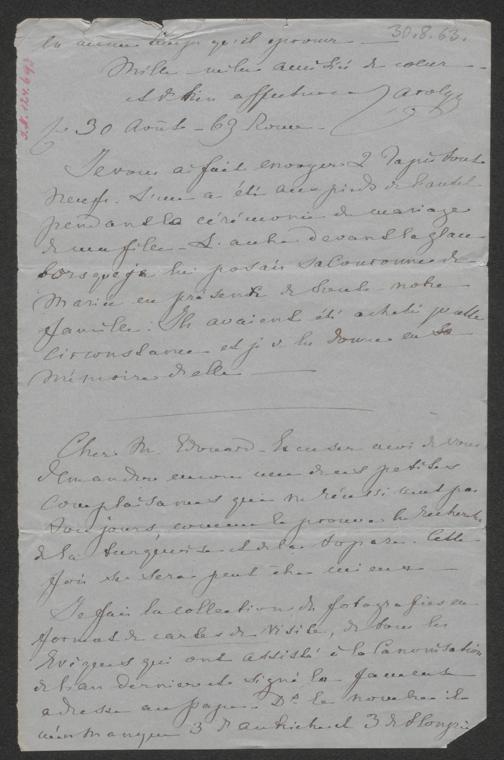 30.8.63.
qu'il éprouve
Mille et mille amitiés de cœur
et de bien affectueux Carolyne
30 Août - 63 Rome -
Je vous ai fait envoyer 2 Tapis tout
neufs. L'un a été aux pieds de l'autel
pendant la cérémonie de mariage
de ma fille - L'autre devant la glace
lorsque je lui posais sa couronne de
Mariée en présence de toute notre
famille. Ils avaient été achetés pr cette
circonstance et je v. les donne en
mémoire d'elle
Cher M. Edouard - Excusez moi de vous
demander encore une de ces petites
complaisances qui ne réussissent pas
toujours, comme le prouve la recherche
de la turquoise et de la topaze. Cette
fois ce sera peut être mieux
Je fais la collection de fotografies en
format de cartes de Visite, de tous les
Evêques qui ont assisté à la Canonisation
de l'an dernier et signé la fameuse
adresse au pape. Ds le nombre il
m'en manque 3 d'Autriche et 3 de Hongrie